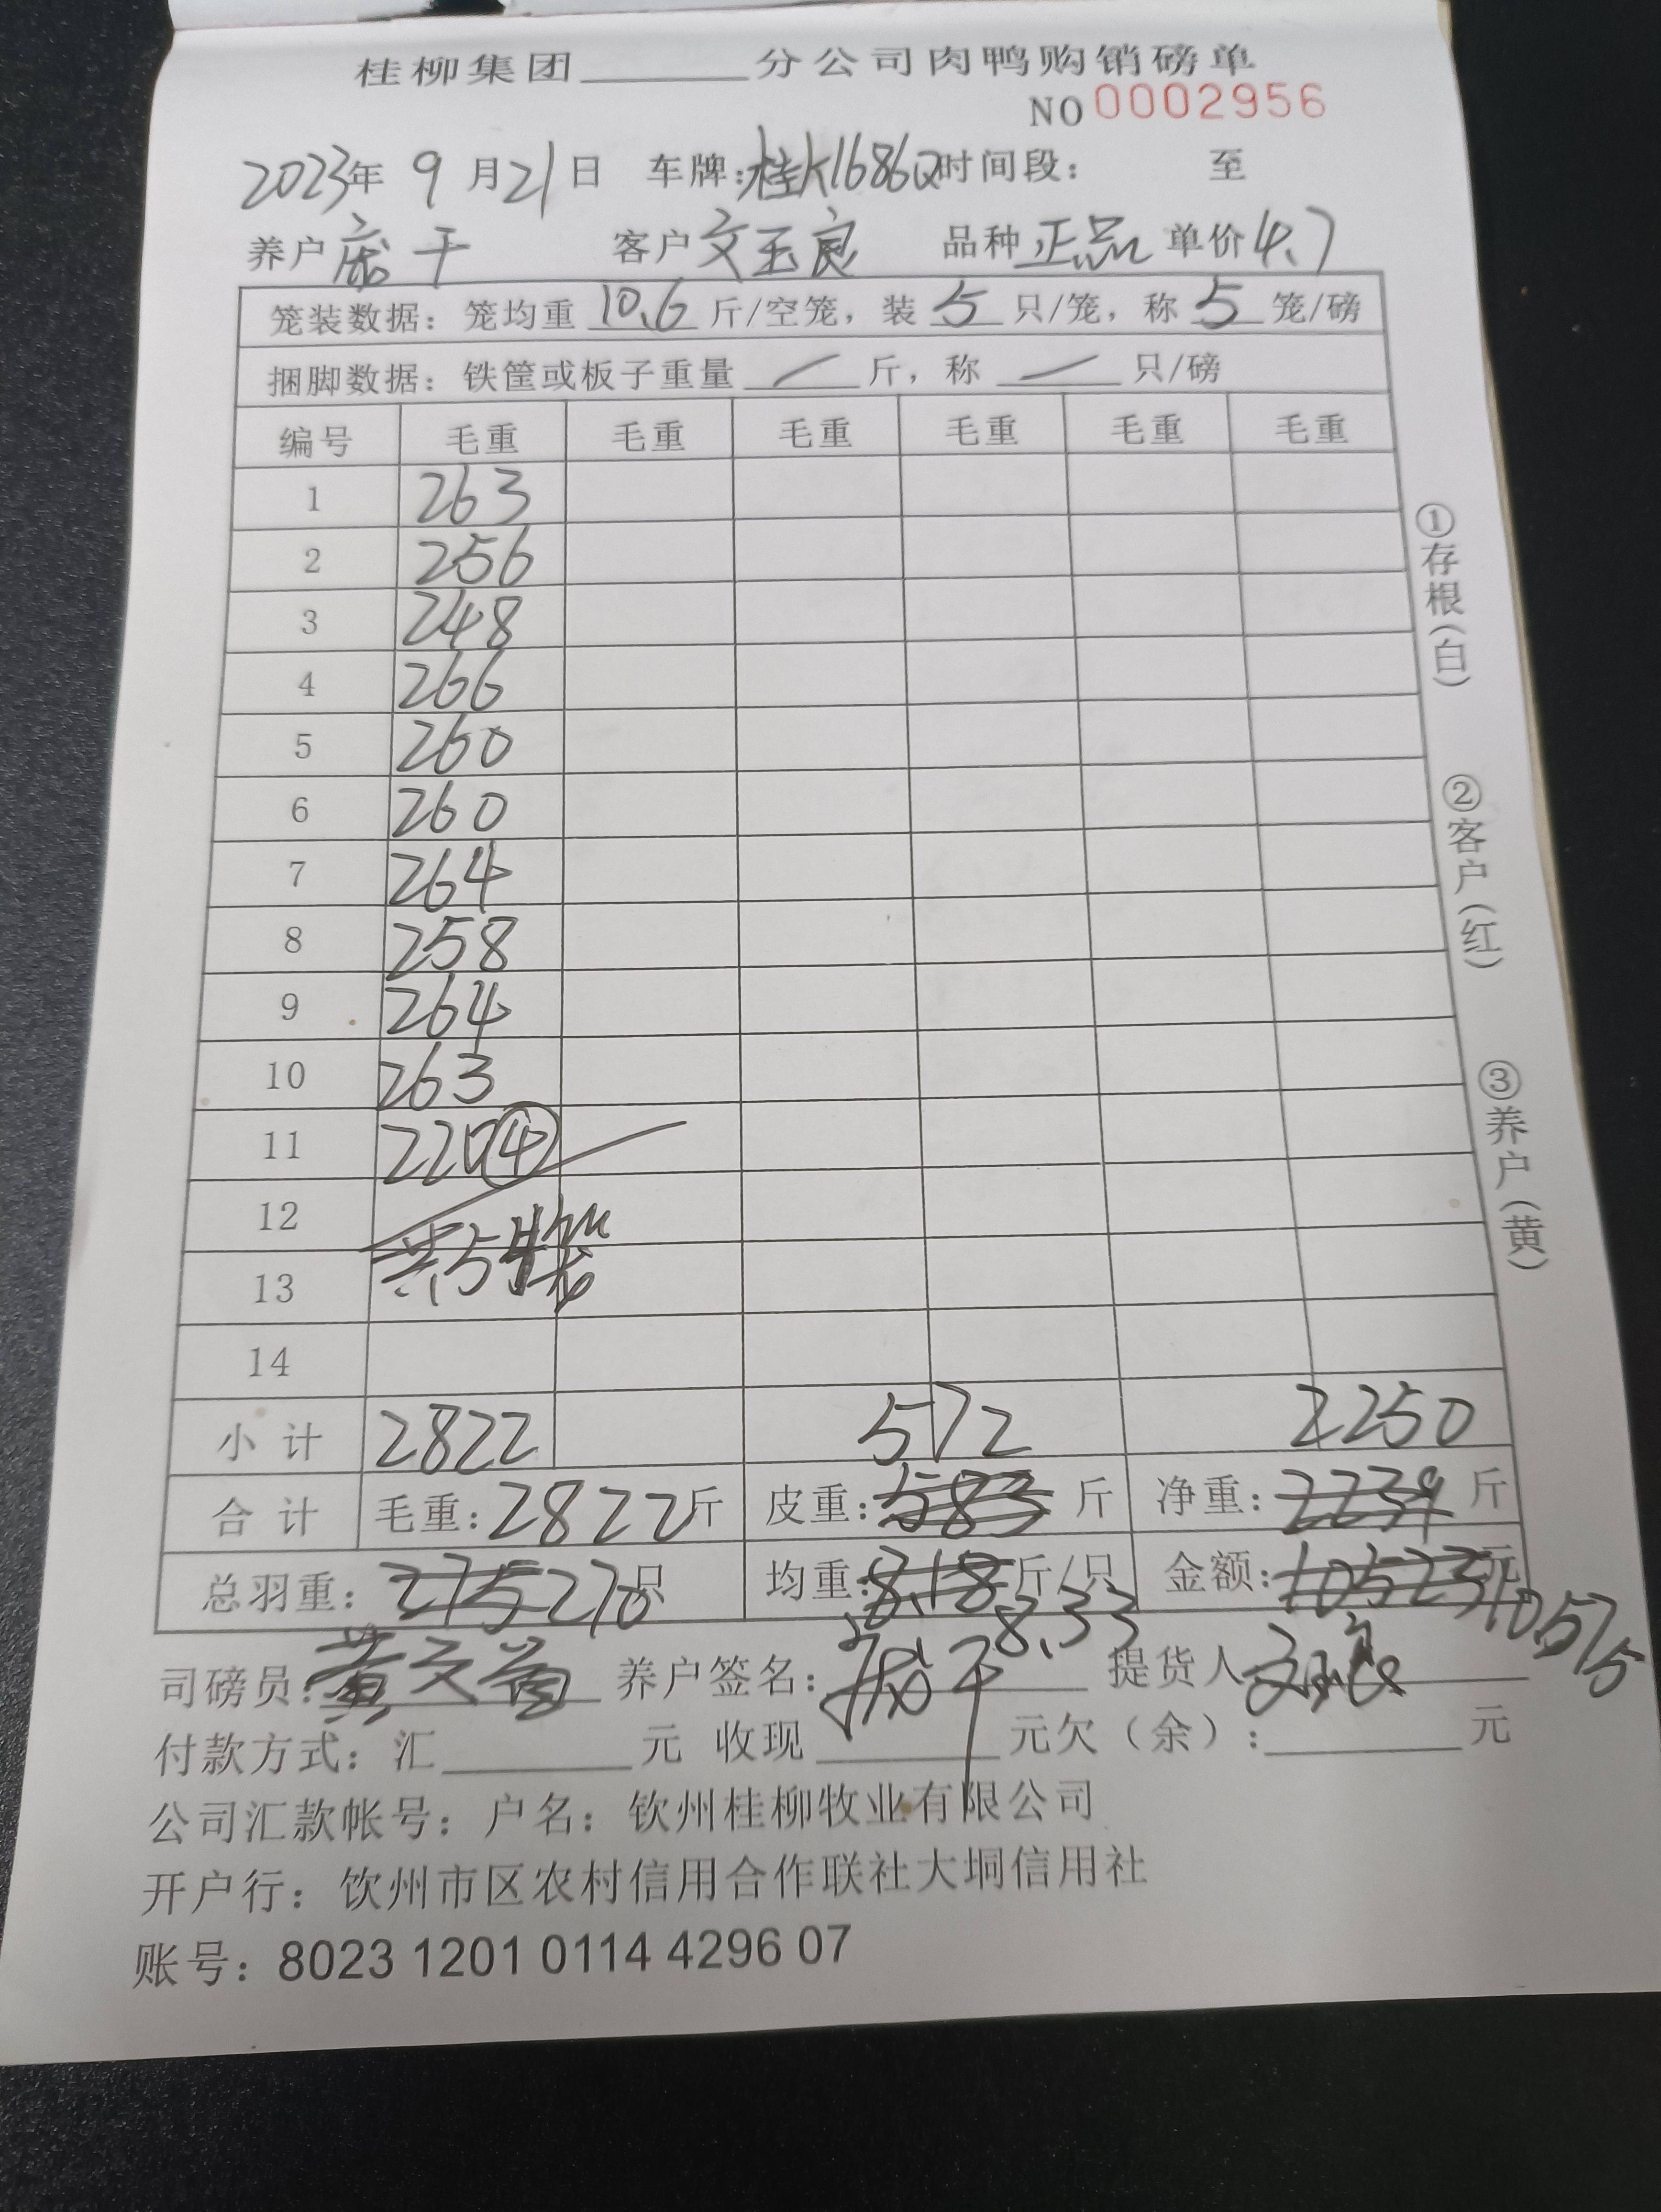 桂柳集团______分公司肉鸭购销磅单
NO 0002956
2023年 9月21日 车牌:桂K1686Q 时间段: 至
养户 庞干 客户 文玉良 品种 正品 单价 4.7
笼装数据: 笼均重 10.6 斤/空笼, 装 5 只/笼, 称 5 笼/磅
捆脚数据: 铁筐或板子重量 / 斤, 称 / 只/磅
编号 毛重 毛重 毛重 毛重 毛重 毛重
1 263
2 256
3 248
4 266
5 260
6 260
7 264
8 258
9 264
10 263
11 220 ④
12
13 共54笼
14
小计 2822 572 2250
合计 毛重:2822斤 皮重:583斤 净重:2239斤
总羽重: 275 270只 均重:8.18斤/只 8.33 金额:10523元 10575
司磅员: 黄文 养户签名: 庞干 提货人 文玉良
付款方式: 汇______元 收现______元欠(余):______元
公司汇款帐号: 户名: 钦州桂柳牧业有限公司
开户行: 钦州市区农村信用合作联社大垌信用社
账号: 8023 1201 0114 4296 07
①存根(白)
②客户(红)
③养户(黄)